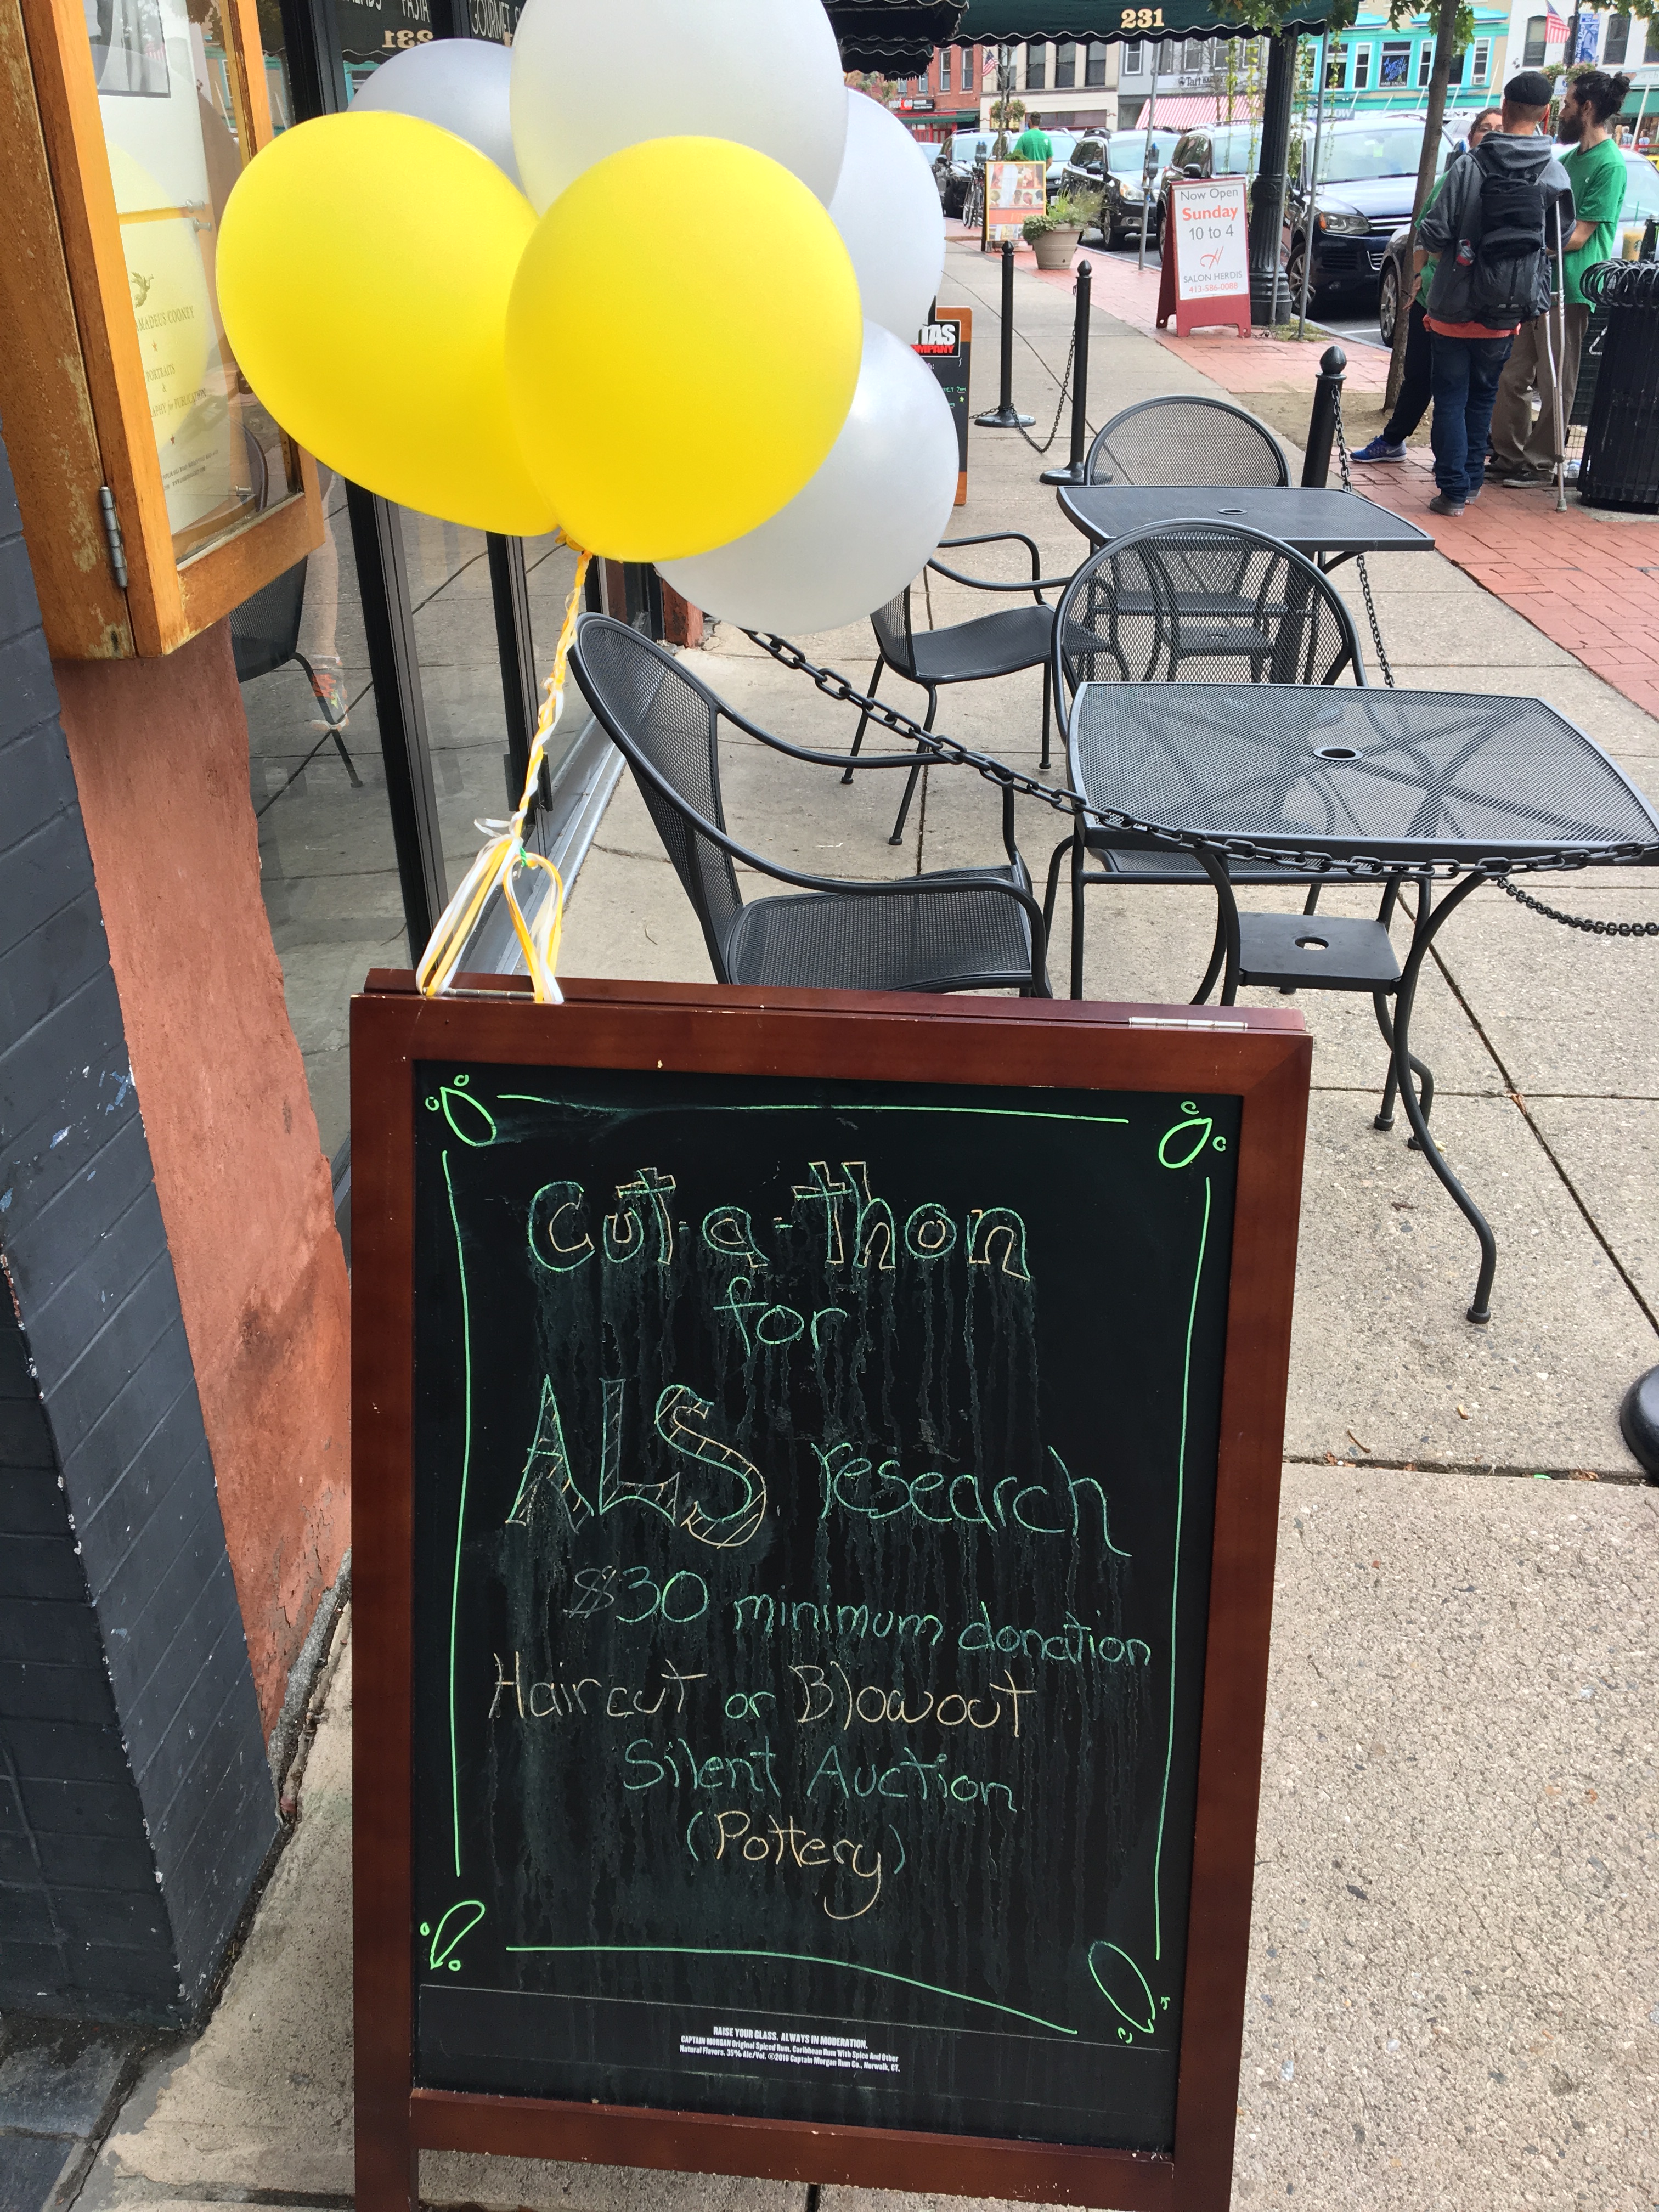 231
GOURMET
PASTA
231
Now Open
Sunday
10 to 4
H
SALON HERDIS
413-586-0088
AMADEUS COONEY
PORTRAITS
&
Cut-a-thon
for
ALS research
$30 minimum donation
Haircut or Blowout
Silent Auction
(Pottery)
RAISE YOUR GLASS. ALWAYS IN MODERATION.
CAPTAIN MORGAN Original Spiced Rum. Caribbean Rum With Spice And Other
Natural Flavors. 35% Alc/Vol. ©2010 Captain Morgan Rum Co., Norwalk, CT.